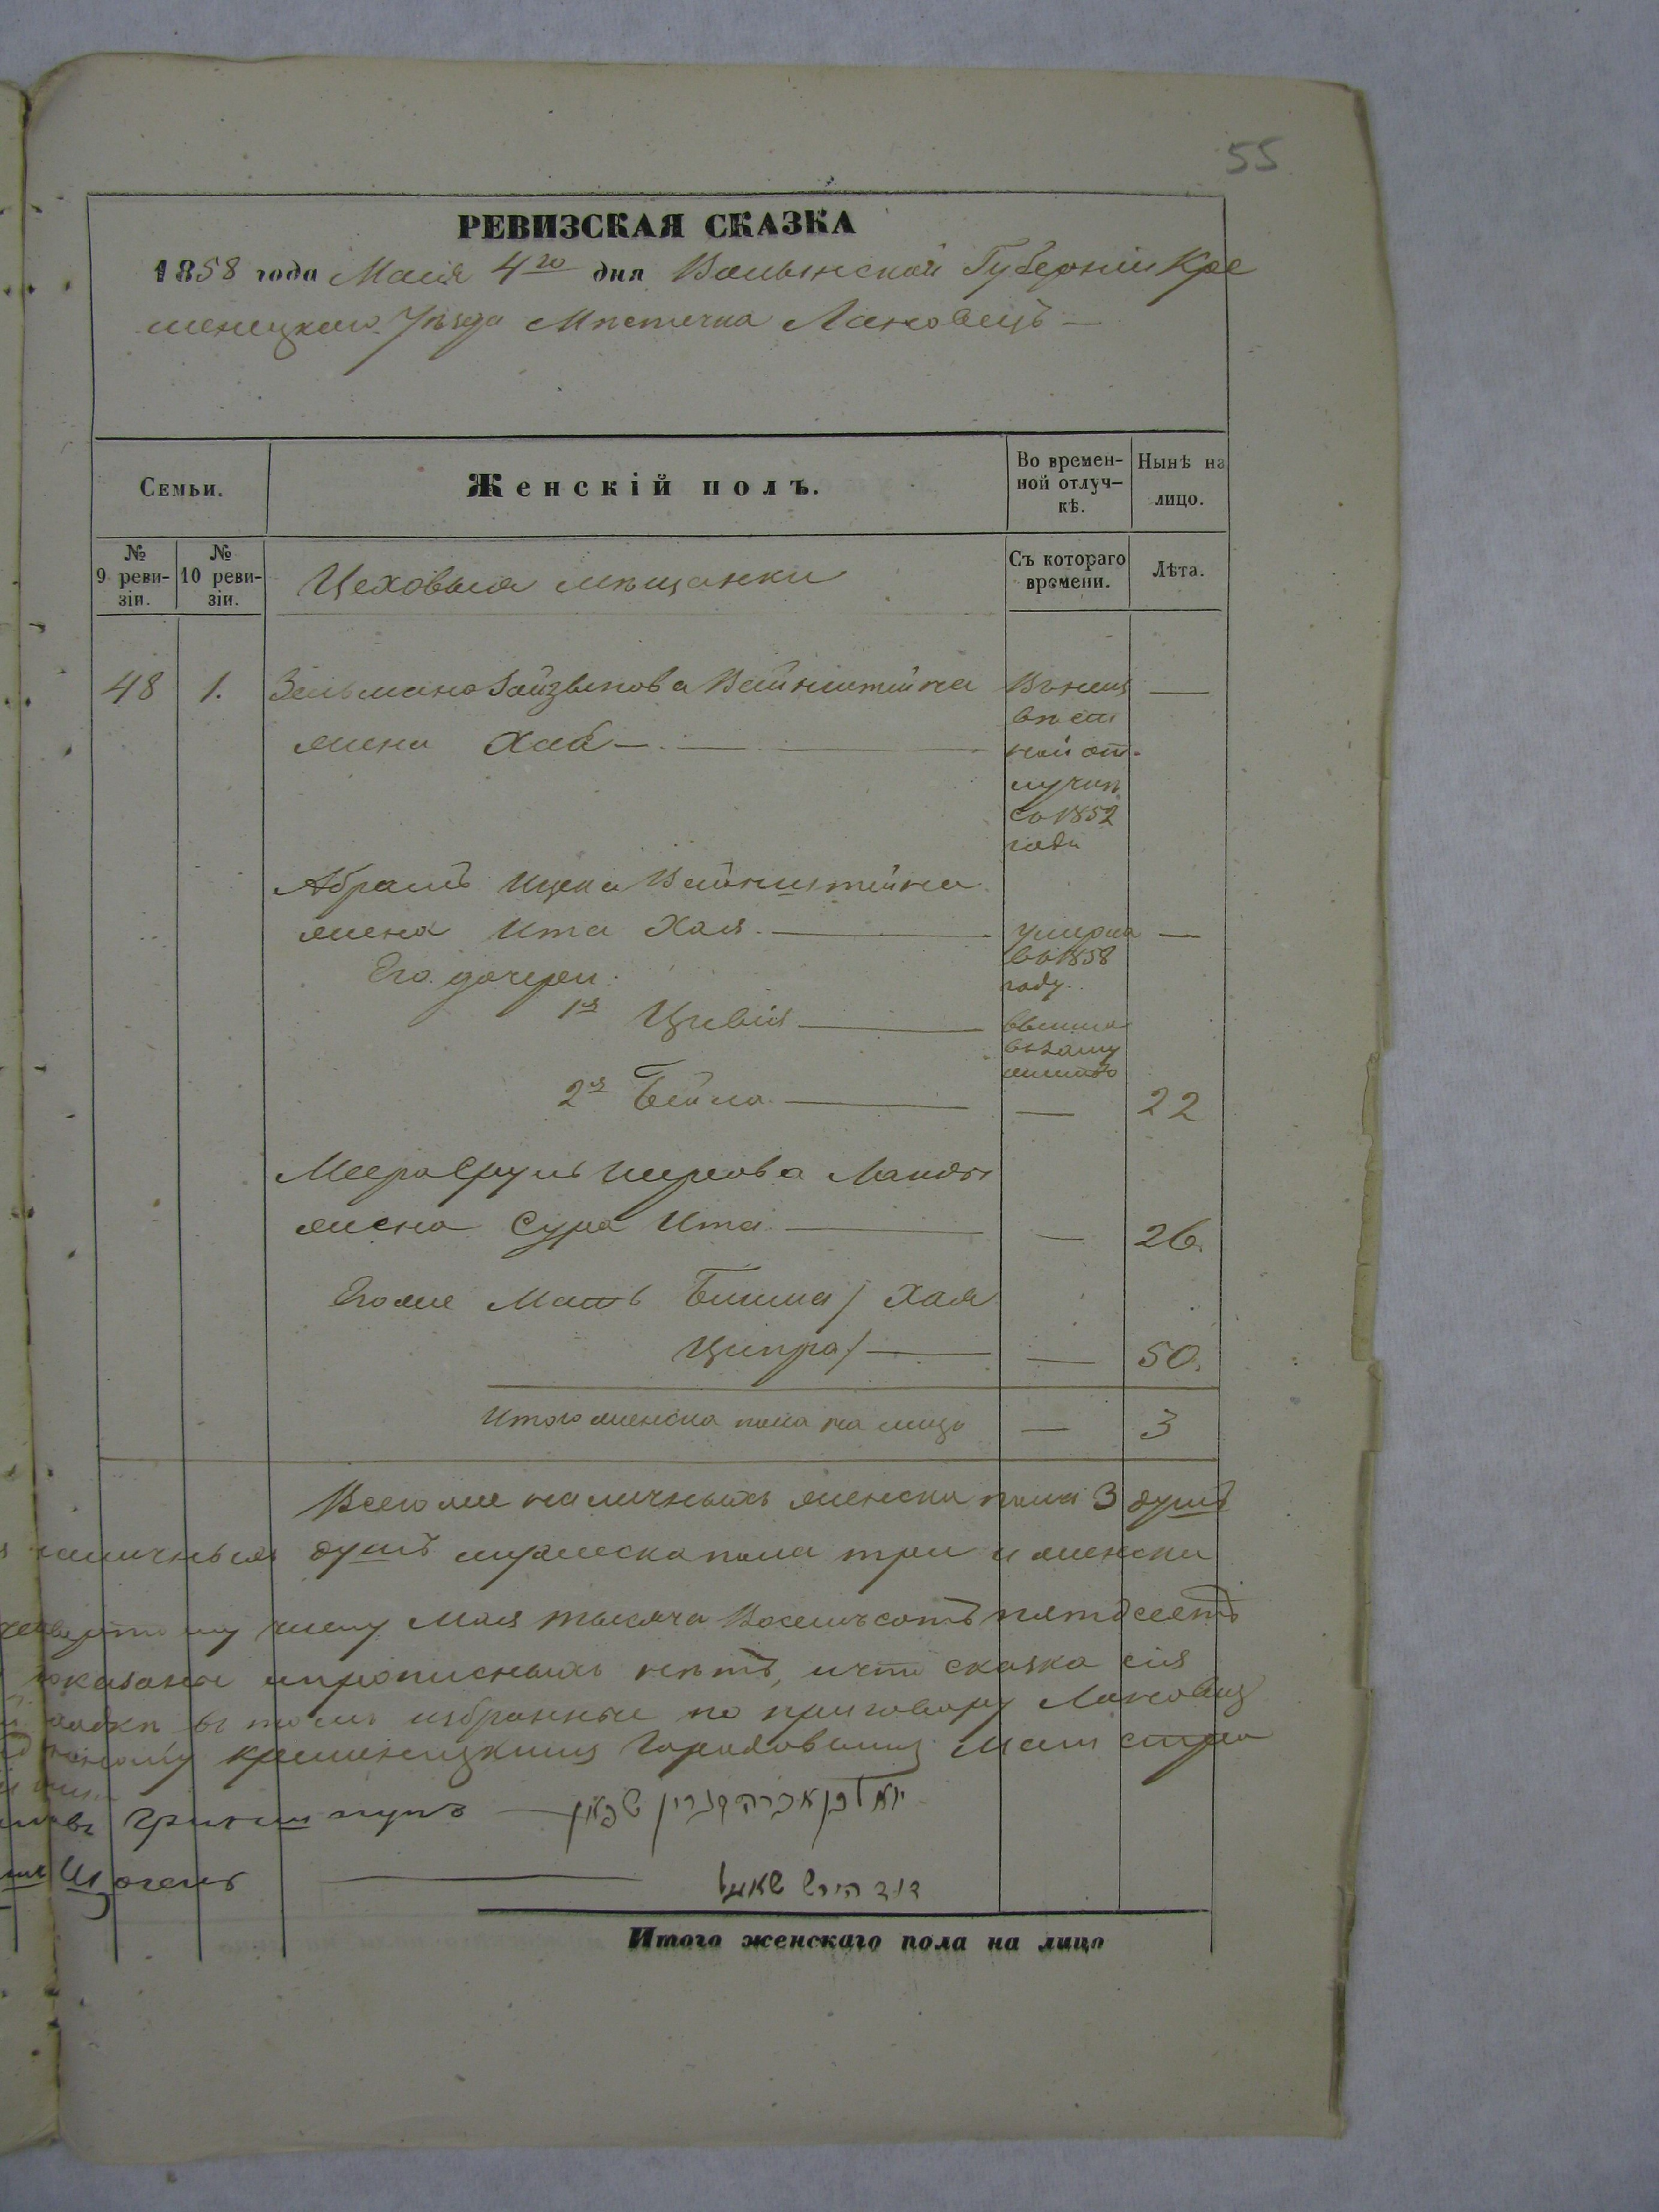 55
РЕВИЗСКАЯ СКАЗКА
1858 года Маія 4го дня Волынской Губерніи Кре
менецкаго Уѣзда Мѣстечка Лановецъ —
Семьи.
Женскій полъ.
Во времен-
ной отлуч-
кѣ.
Нынѣ на
лицо.
№
9 реви-
зіи.
№
10 реви-
зіи.
Цеховыя мѣщанки
Съ котораго
времени.
Лѣта.
48 1. Зельмана Вайнштейна
жена Хая —
въ
ной от-
лучкѣ
со 1852
года
—
Абрамъ Ицека Вайнштейна
жена Ита Хая — умерла —
въ 1858
году.
Его дочери:
1я Цивія —
вышла
въ заму
жество
2я Бейла — — 22
Меера Сруль Лайды
жена Сура Ита — — 26.
Егоже Мать / Хая
Ципра / — — 50.
Итого женска пола на лицо — 3
Всего же наличныхъ женска пола 3 душъ
наличныхъ душъ мужеска пола три и женска
числу Мая тысяча Восемьсотъ пятдесетъ
показаны и прописныхъ нѣтъ, и что сказка сія
въ томъ избранные по приговору Лановец
Кременецкимъ Городовымъ
דוד הירש
Итого женскаго пола на лицо